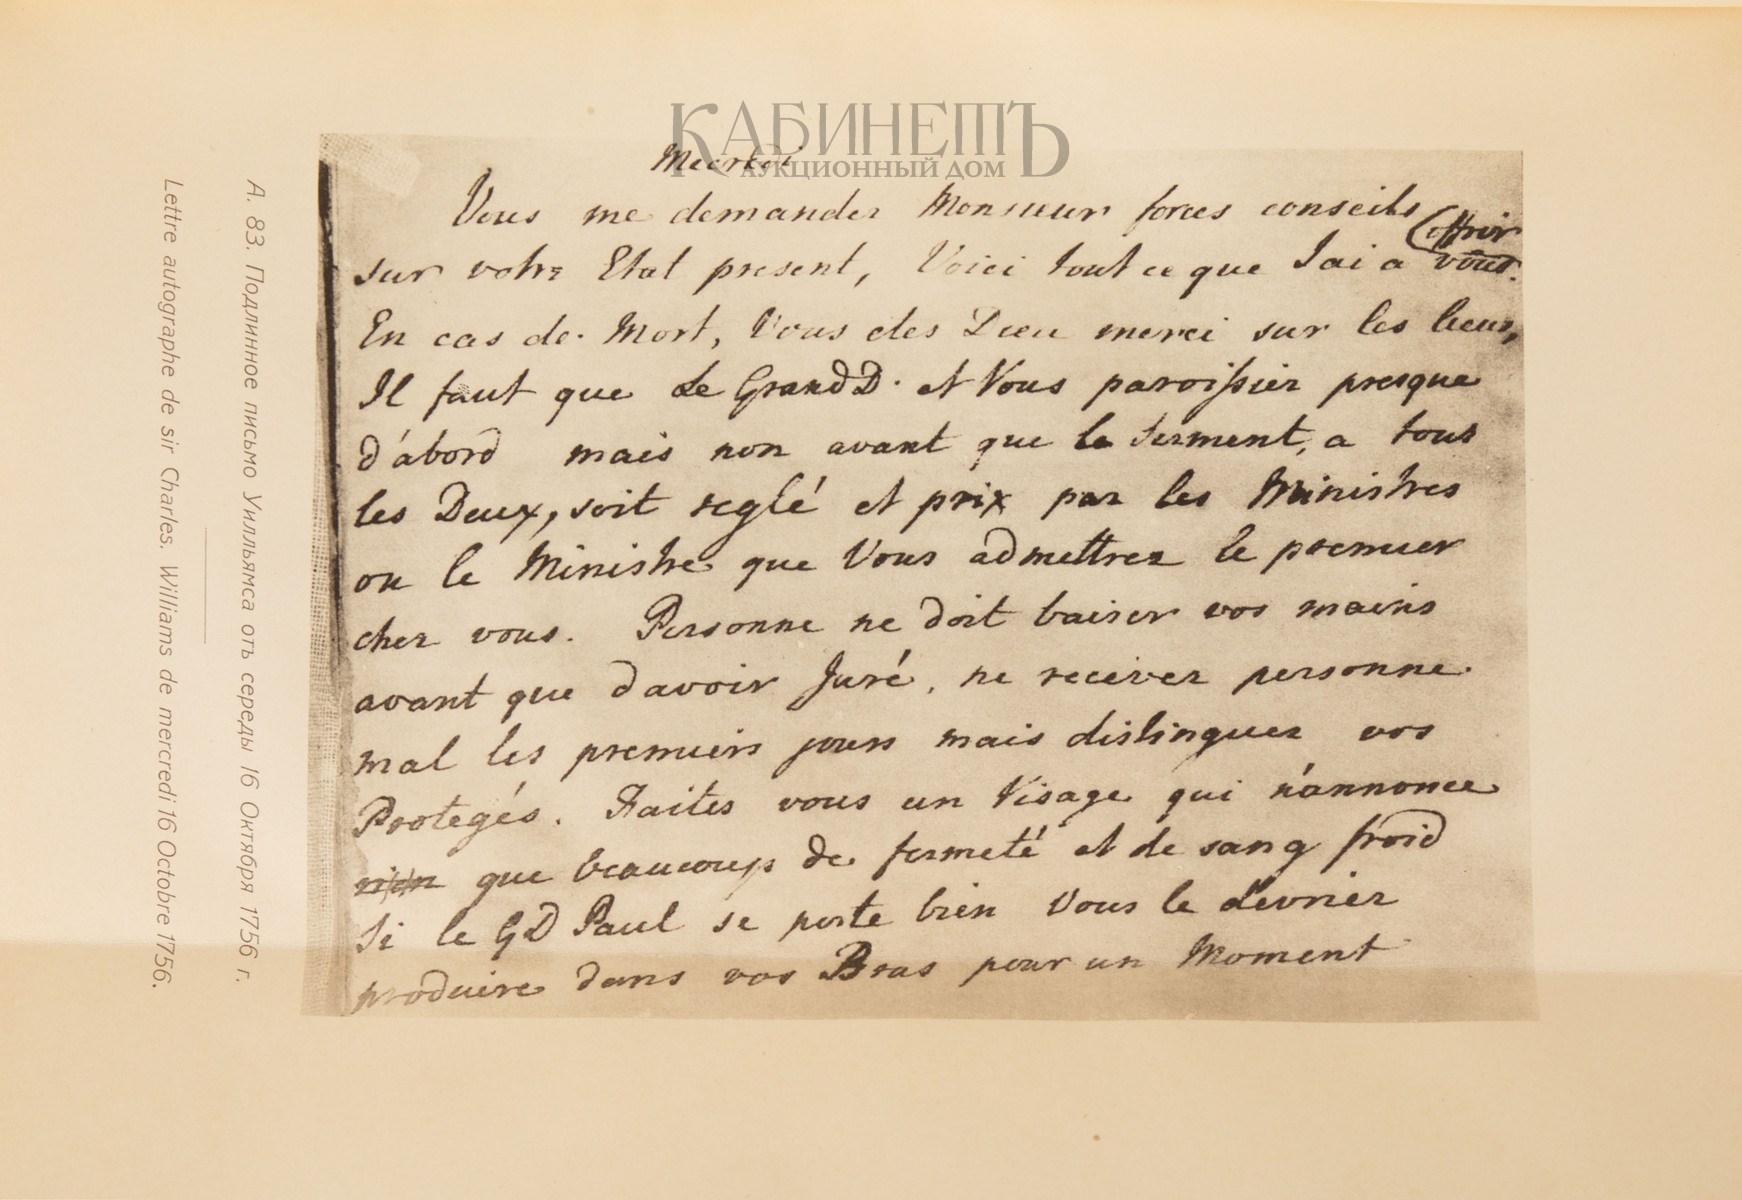 КАБИНЕТЪ
АУКЦИОННЫЙ ДОМ
Mecrdi
Vous me demander Monsieur forces conseils
offrir
sur votre Etat present, Voici tout ce que Jai a vous.
En cas de Mort, Vous etes Dieu merci sur les lieus,
Il faut que Le Grand D. et Vous paroissier presque
d'abord mais non avant que le serment, a tous
les Deux, soit reglé et prix par les Ministres
ou le Ministre que Vous admettrez le premier
cher vous. Personne ne doit baiser vos mains
avant que davoir Juré, ne recever personne
mal les premiers jours mais distinguer vos
Protegés. Faites vous un Visage qui n'annonce
rien que beaucoup de fermeté et de sang froid
Si le GD Paul se porte bien Vous le devrier
produire dans vos Bras pour un Moment
А. 83. Подлинное письмо Уилльямса отъ середы 16 Октября 1756 г.
Lettre autographe de sir Charles. Williams de mercredi 16 Octobre 1756.